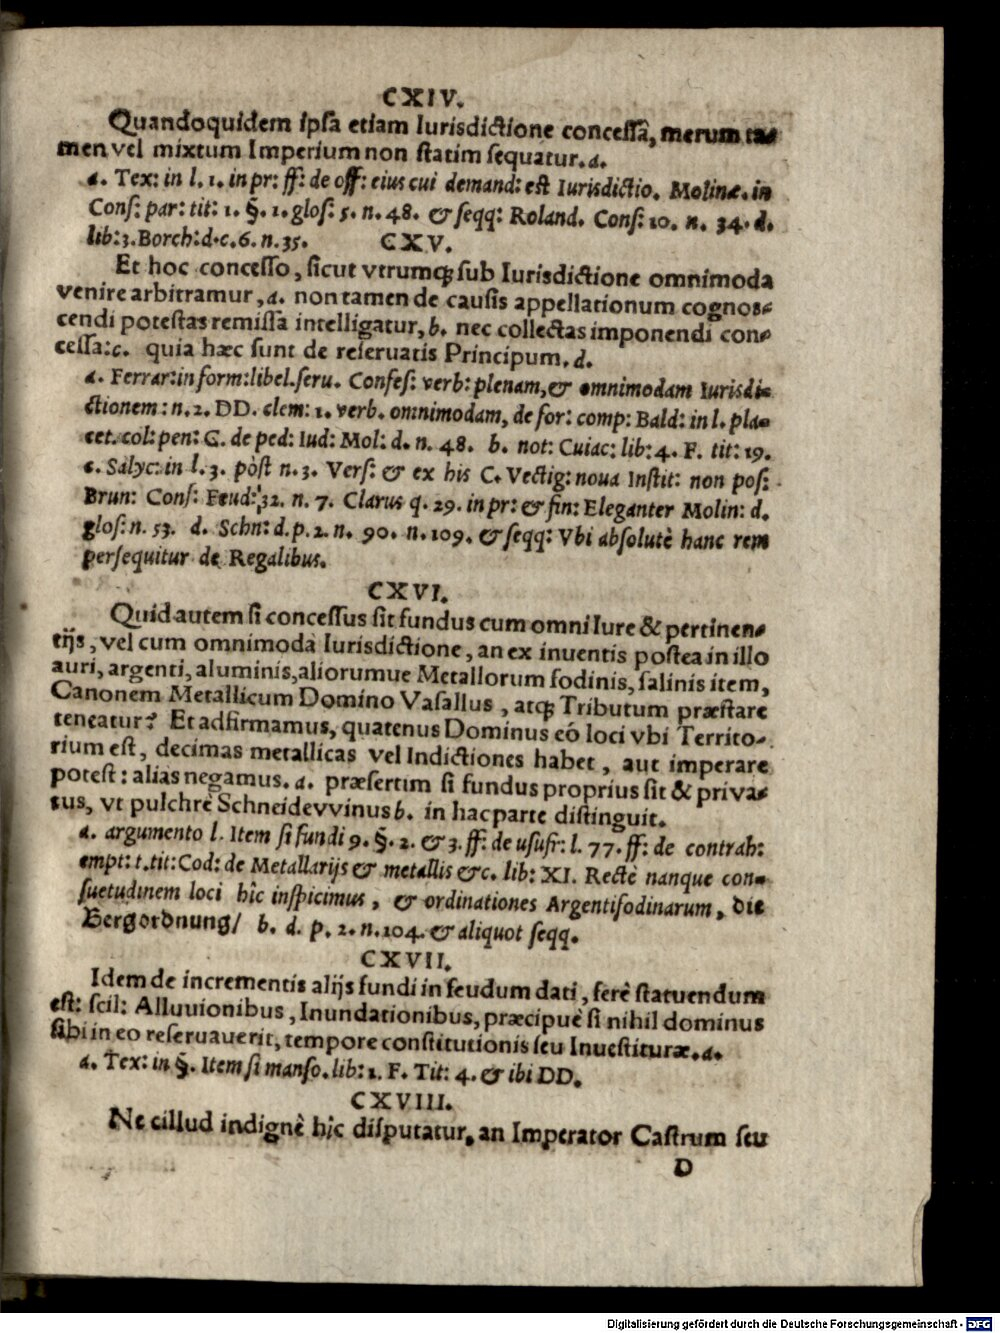 CXIV.
Quandoquidem ipsa etiam Iurisdictione concessâ, merum ta-
men vel mixtum Imperium non statim sequatur. a.
a. Tex: in l. 1. in pr: ff: de off: eius cui demand: est Iurisdictio. Molinæ. in
Cons: par: tit: 1. §. 1. glos: 5. n. 48. & seqq: Roland. Cons: 10. n. 34. d.
lib: 3. Borch: d. c. 6. n. 35.
CXV.
Et hoc concesso, sicut vtrumq; sub Iurisdictione omnimoda
venire arbitramur, a. non tamen de causis appellationum cognos-
cendi potestas remissa intelligatur, b. nec collectas imponendi con-
cessa: c. quia hæc sunt de reseruatis Principum. d.
a. Ferrar: in form: libel. seru. Confes: verb: plenam, & omnimodam Iurisdi-
ctionem: n. 2. DD. clem: 1. verb. omnimodam, de for: comp: Bald: in l. pla-
cet. col: pen: C. de ped: Iud: Mol: d. n. 48. b. not: Cuiac: lib: 4. F. tit: 19.
c. Salyc: in l. 3. pòst n. 3. Vers: & ex his C. Vectig: noua Instit: non pos:
Brun: Cons: Feud: 32. n. 7. Clarus q. 29. in pr: & fin: Eleganter Molin: d.
glos: n. 53. d. Schn: d. p. 2. n. 90. n. 109. & seqq: Vbi absolutè hanc rem
persequitur de Regalibus.
CXVI.
Quid autem si concessus sit fundus cum omni Iure & pertinen-
tijs, vel cum omnimoda Iurisdictione, an ex inuentis postea in illo
auri, argenti, aluminis, aliorumue Metallorum fodinis, salinis item,
Canonem Metallicum Domino Vasallus, atq; Tributum præstare
teneatur? Et adfirmamus, quatenus Dominus eó loci vbi Territo-
rium est, decimas metallicas vel Indictiones habet, aut imperare
potest: alias negamus. a. præsertim si fundus proprius sit & priva-
tus, vt pulchrè Schneidevvinus b. in hac parte distinguit.
a. argumento l. Item si fundi 9. §. 2. & 3. ff: de usufr: l. 77. ff: de contrah:
empt: t. tit: Cod: de Metallarijs & metallis &c. lib: XI. Rectè nanque con-
suetudinem loci hîc inspicimus, & ordinationes Argentifodinarum, die
Bergordnung/ b. d. p. 2. n. 104. & aliquot seqq.
CXVII.
Idem de incrementis alijs fundi in feudum dati, ferè statuendum
est: scil: Alluuionibus, Inundationibus, præcipuè si nihil dominus
sibi in eo reseruauerit, tempore constitutionis seu Inuestituræ. a.
a. Tex: in §. Item si manso. lib: 1. F. Tit: 4. & ibi DD.
CXVIII.
Nec illud indignè hîc disputatur, an Imperator Castrum seu
D
Digitalisierung gefördert durch die Deutsche Forschungsgemeinschaft - DFG